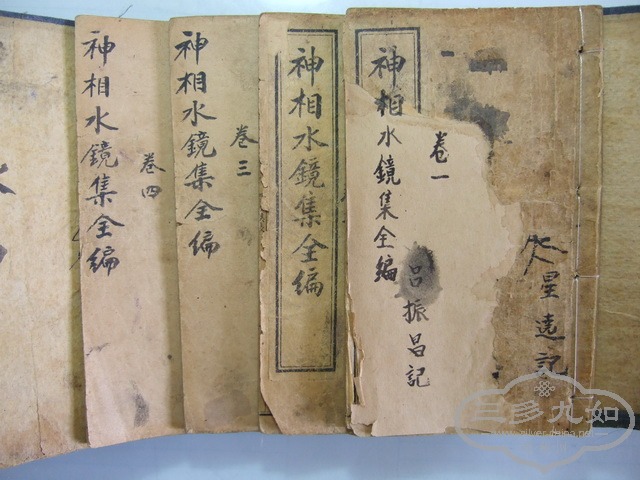 神相水鏡集全編
卷一
呂振昌記
星遠記
神相水鏡集全編
神相水鏡集全編
卷三
神相水鏡集全編
卷四
三多九如